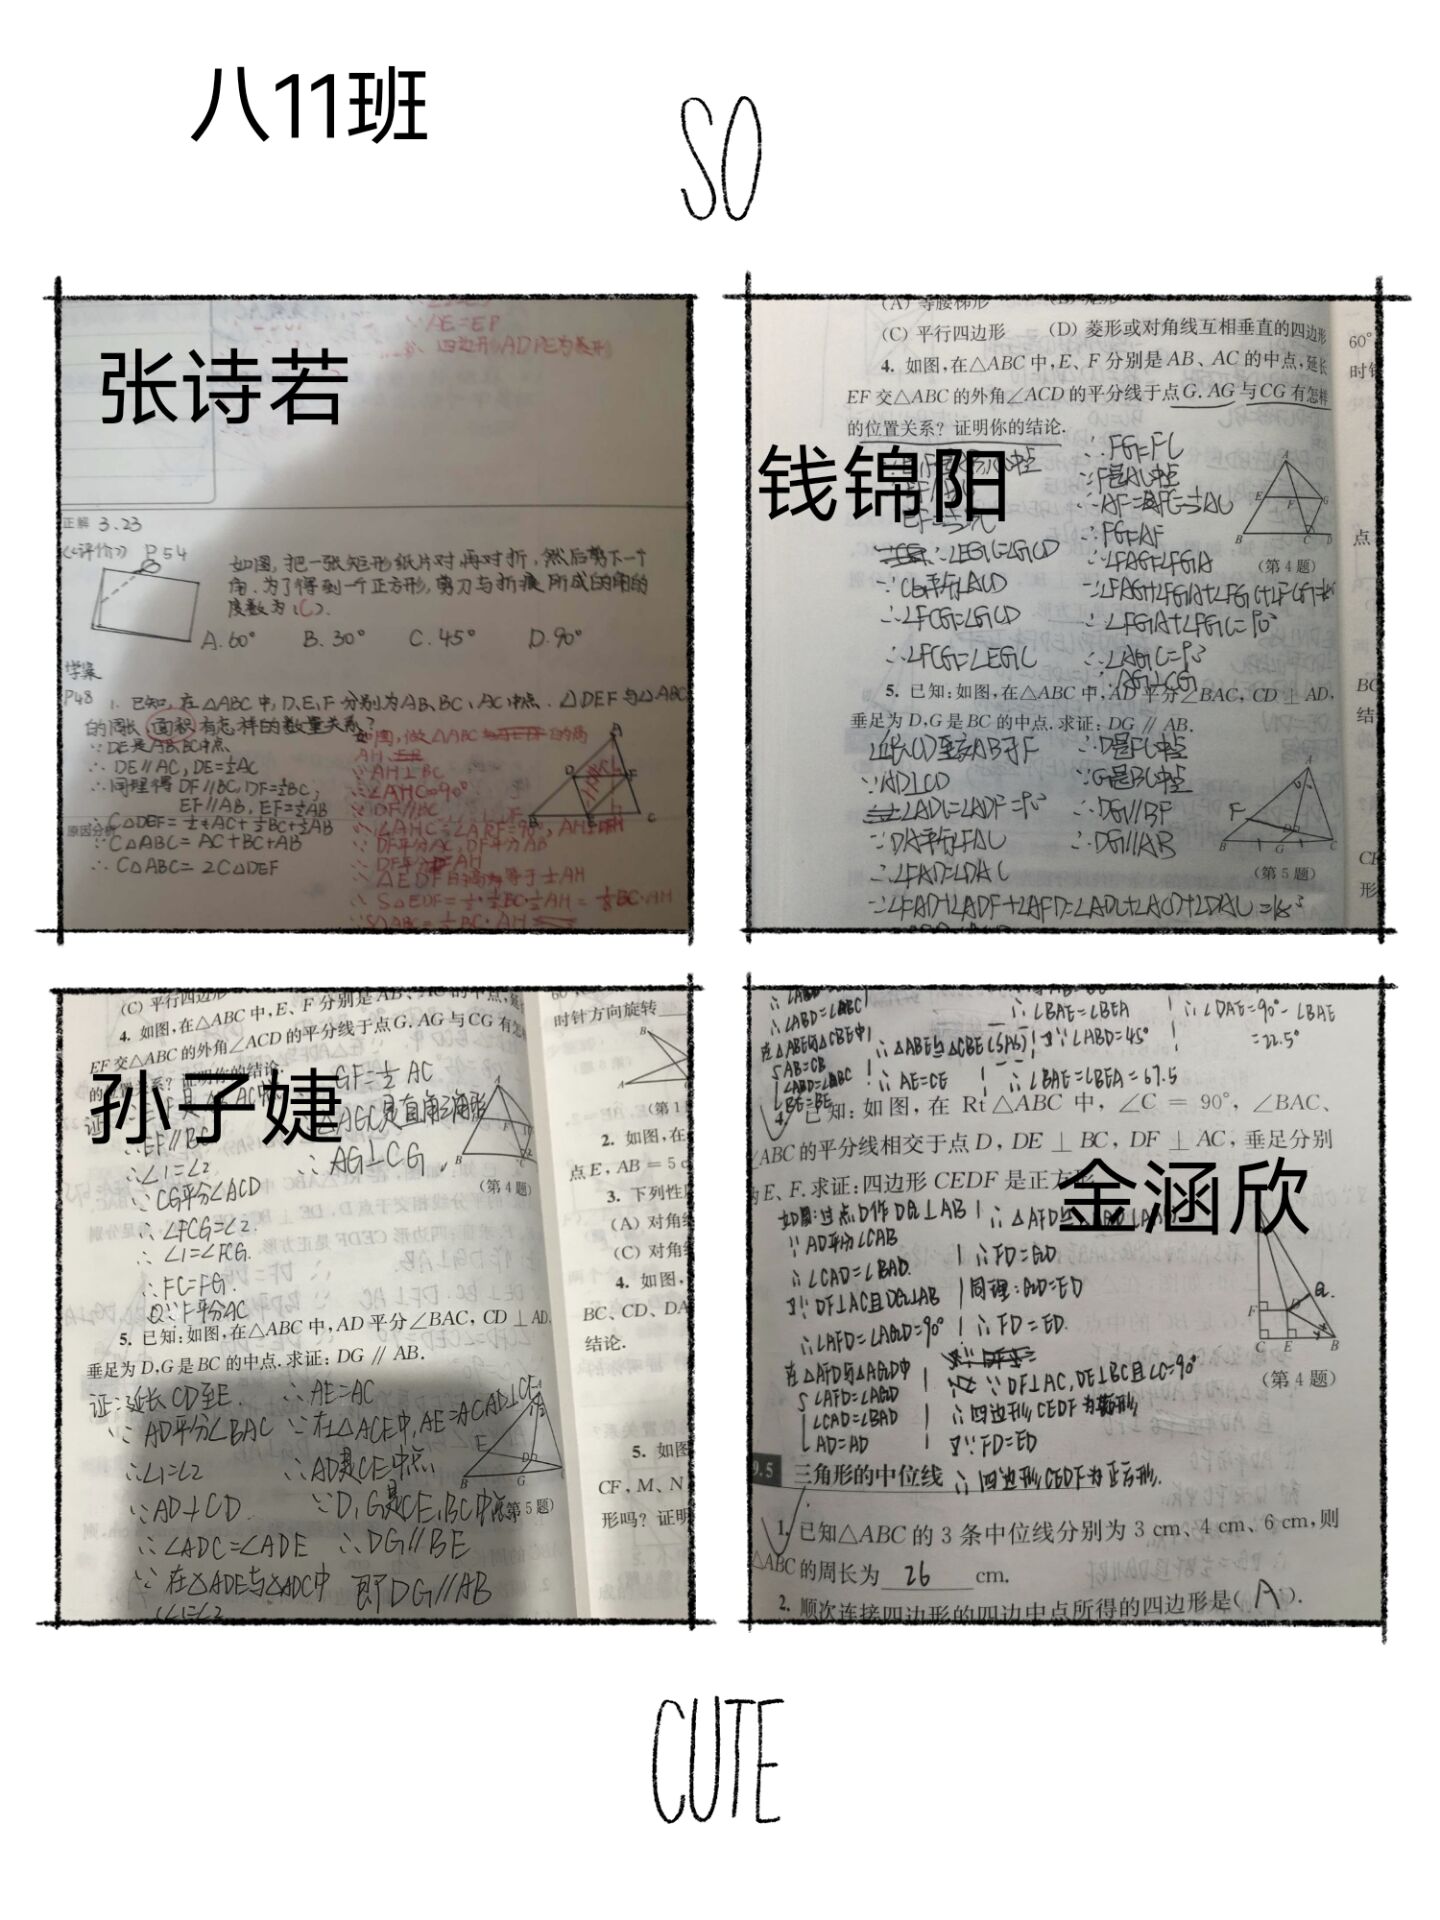 八11班
SO
张诗若
∵AE=EP
∴四边形ADPE为菱形
正解 3.23
《评价》P54
如图,把一张矩形纸片对,再对折,然后剪下一个
角,为了得到一个正方形,剪刀与折痕所成的角的
度数为(C).
A.60° B.30° C.45° D.90°
学案
P48 1. 已知,在△ABC中,D,E,F分别为AB,BC,AC中点.△DEF与△ABC
的周长(面积)有怎样的数量关系?
∴DE∥AC,DE=½AC
∴同理得DF∥BC,DF=½BC,
EF∥AB,EF=½AB
原因分析
∵C△ABC=AC+BC+AB
∴C△ABC=2C△DEF
如图,做△ABC
∵AH⊥BC
∴∠AHC=90°
∵DF∥BC
∴S△EDF=½·½BC·½AH=⅛BC·AH
钱锦阳
(C) 平行四边形 (D) 菱形或对角线互相垂直的四边形
4. 如图,在△ABC中,E、F分别是AB、AC的中点,延长
EF交△ABC的外角∠ACD的平分线于点G.AG与CG有怎样
的位置关系?证明你的结论.
∴∠EGC=∠GCD
∵CG平分∠ACD
∴∠FCG=∠GCD
∴∠FCG=∠EGC
∴FG=FC
∵F是AC中点
∴AF=FC=½AC
∴FG=AF
∴∠FAG=∠FGA
∴∠FGA+∠FGC=90°
∴∠AGC=90°
∴AG⊥CG
(第4题)
5. 已知:如图,在△ABC中,AD平分∠BAC,CD⊥AD,
垂足为D,G是BC的中点.求证:DG∥AB.
延长CD至交AB于F
∵AD⊥CD
∠ADC=∠ADF=90°
∵DA平分∠FAC
∴∠FAD=∠DAC
∵∠FAD+∠ADF+∠AFD=∠ADC+∠ACD+∠DAC=180°
∴D是FC中点
∵G是BC中点
∴DG∥BF
∴DG∥AB
(第5题)
60°
点
结
形
孙子婕
(C) 平行四边形
4. 如图,在△ABC中,E、F分别是AB、AC的中点,延
EF交△ABC的外角∠ACD的平分线于点G.AG与CG有怎
证明你的结论.
∴EF∥BC
∴∠1=∠2
∵CG平分∠ACD
∴∠FCG=∠2.
∴∠1=∠FCG.
∴FC=FG.
∵F平分AC
GF=½AC
△AGC是直角三角形
∴AG⊥CG.
(第4题)
5. 已知:如图,在△ABC中,AD平分∠BAC,CD⊥AD,
垂足为D,G是BC的中点.求证:DG∥AB.
证:延长CD至E.
∵AD平分∠BAC
∴∠1=∠2
∵AD⊥CD.
∴∠ADC=∠ADE
∵在△ADE与△ADC中
∠1=∠2
∴AE=AC
∵在△ACE中,AE=AC,AD⊥CE
∴D是CE中点
∵D,G是CE,BC中点
∴DG∥BE
即DG∥AB
(第5题)
时针方向旋转
(第1
2. 如图,在
点E,AB=5c
3. 下列性质
(A) 对角线
(C) 对角线
4. 如图,
BC、CD、DA
结论.
5. 如图
CF,M、N
形吗?证明
金涵欣
∴∠ABD=∠ABC
在△ABE与△CBE中
AB=CB
BE=BE
∴△ABE≌△CBE(SAS)
∴AE=CE
∴∠BAE=∠BEA
又∵∠ABD=45°
∴∠BAE=∠BEA=67.5
∴∠DAE=90°-∠BAE
=22.5°
4. 已知:如图,在Rt△ABC中,∠C=90°,∠BAC、
∠ABC的平分线相交于点D,DE⊥BC,DF⊥AC,垂足分别
为E、F.求证:四边形CEDF是正方形.
如图:过点D作DG⊥AB
∵AD平分∠CAB
∴∠CAD=∠BAD.
又∵DF⊥AC且DG⊥AB
∴∠AFD=∠AGD=90°
在△AFD与△AGD中
∠AFD=∠AGD
∠CAD=∠BAD
AD=AD
∴FD=GD
同理:GD=ED
∴FD=ED.
∵DF⊥AC,DE⊥BC且∠C=90°
∴四边形CEDF为矩形
又∵FD=ED
∴四边形CEDF为正方形.
(第4题)
三角形的中位线
1. 已知△ABC的3条中位线分别为3 cm、4 cm、6 cm,则
△ABC的周长为 26 cm.
2. 顺次连接四边形的四边中点所得的四边形是(A).
CUTE